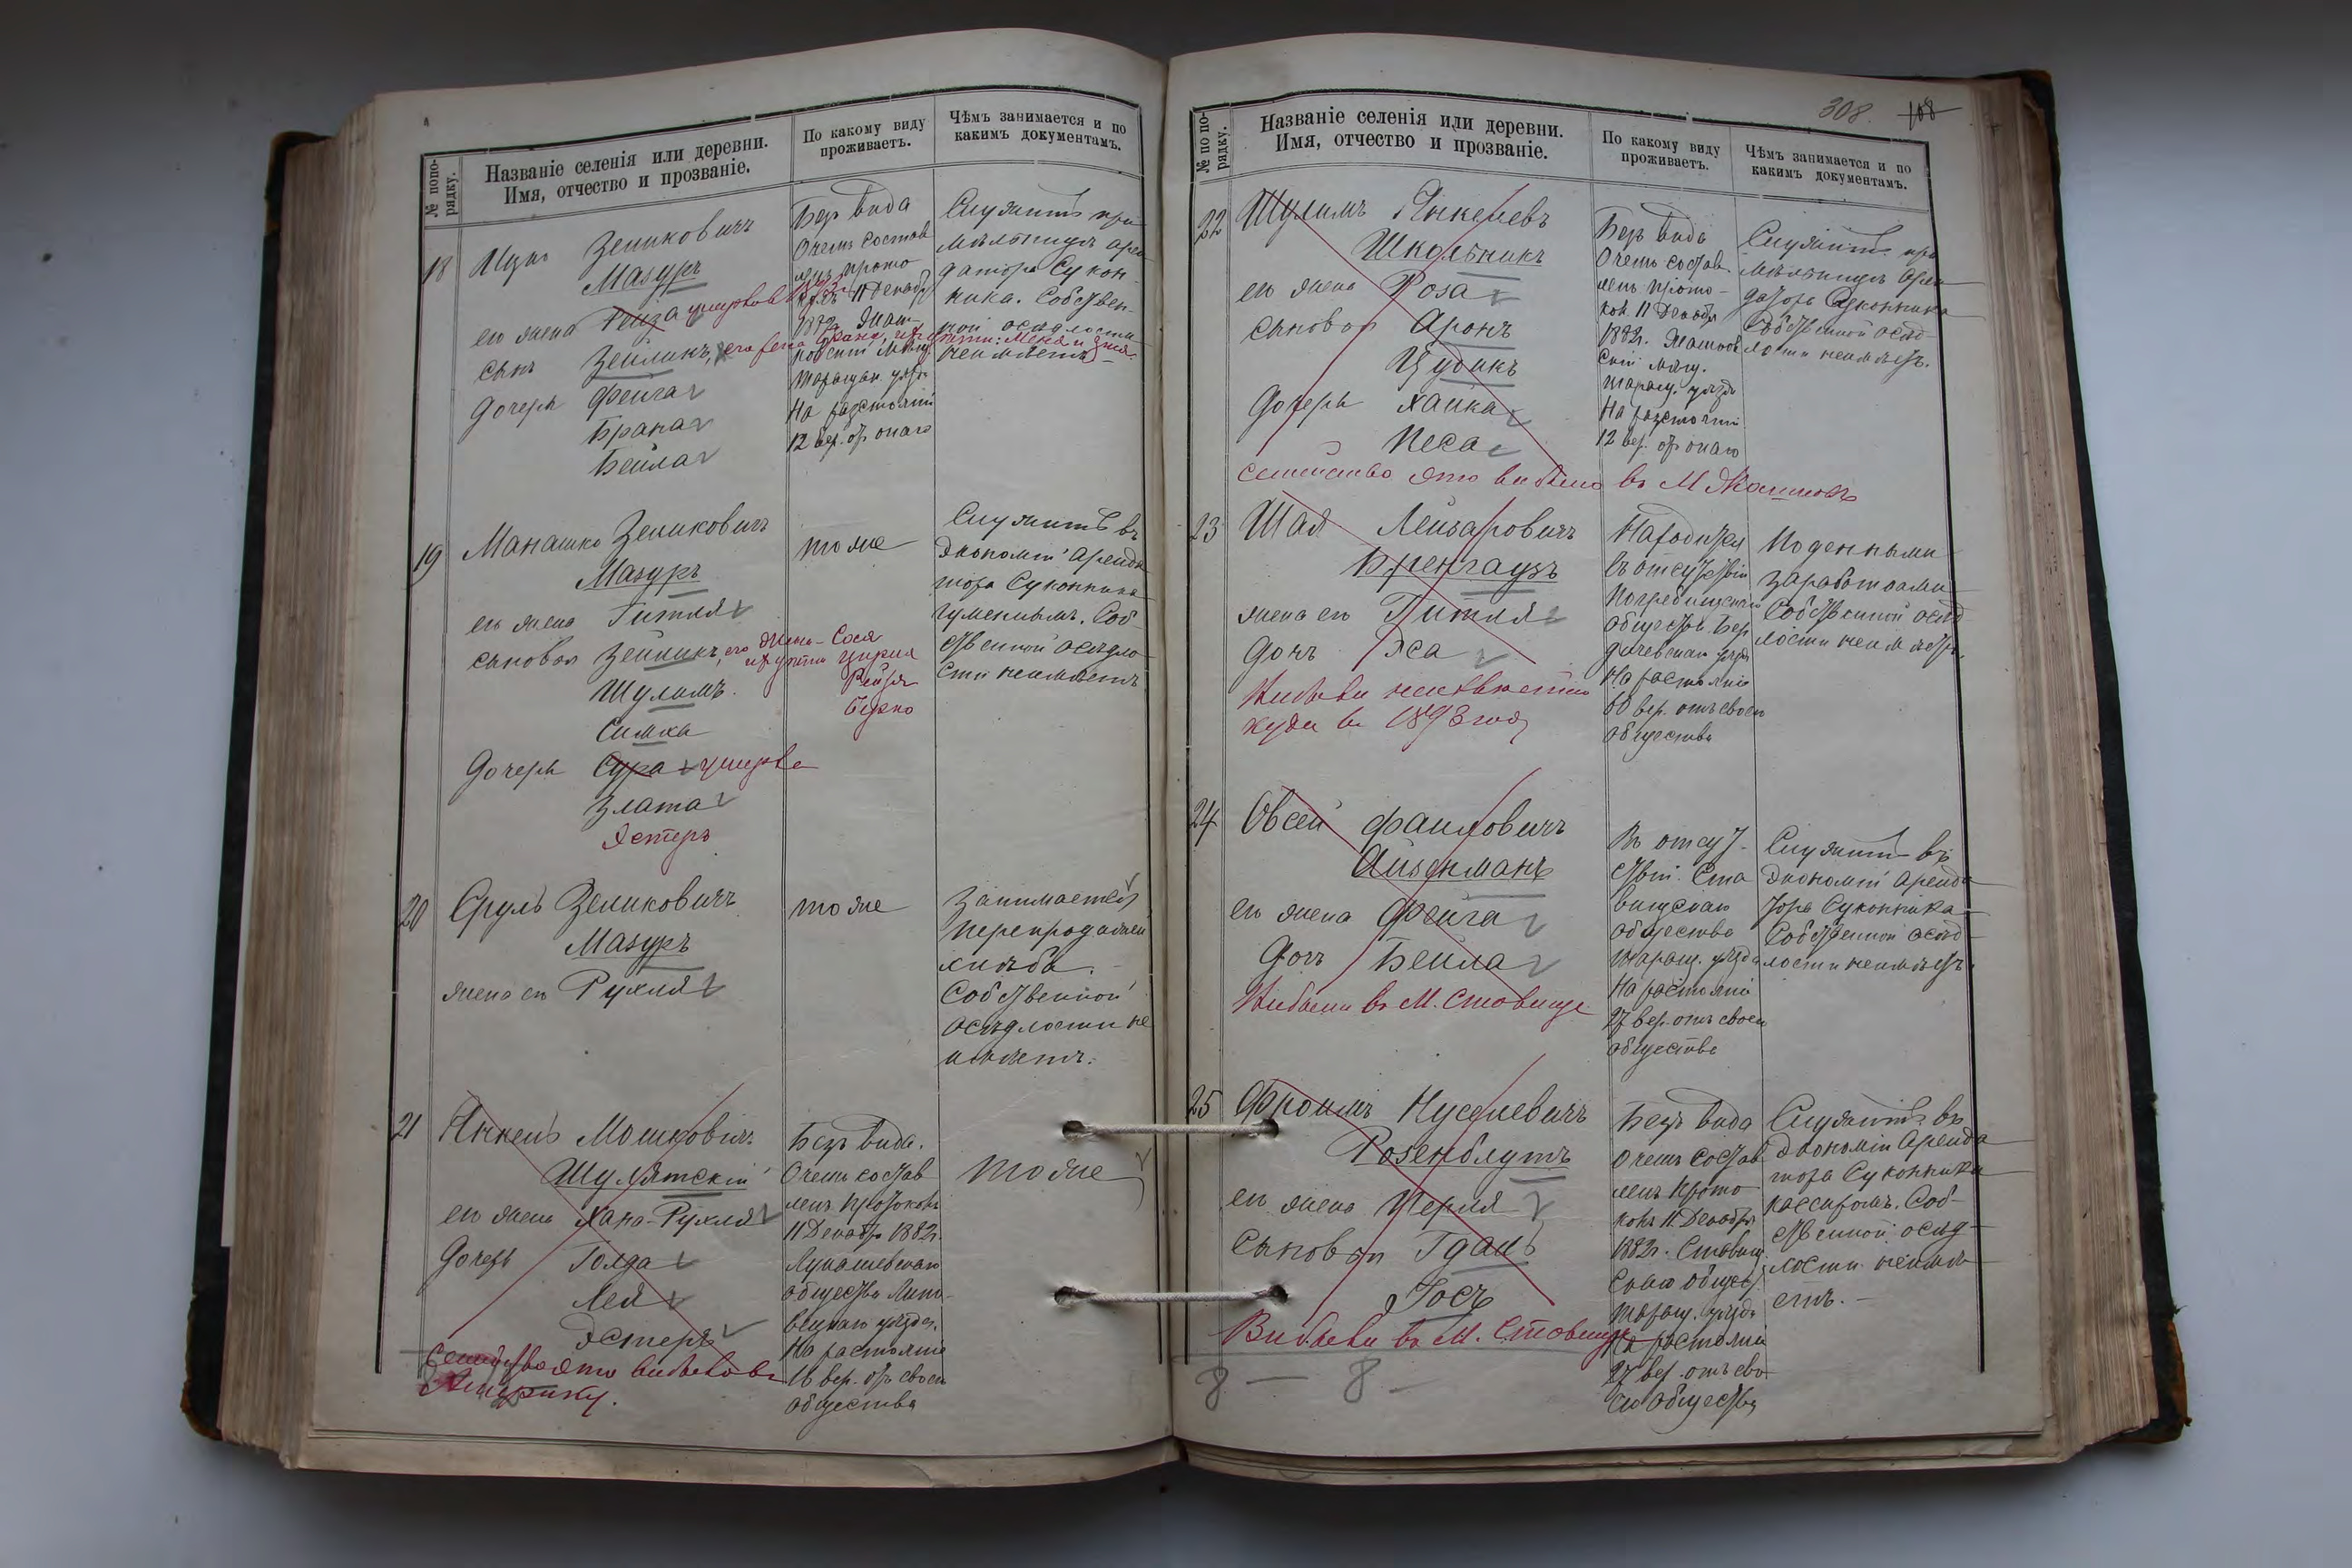 № по по-
рядку.
Названіе селенія или деревни.
Имя, отчество и прозваніе.
По какому виду
проживаетъ.
Чѣмъ занимается и по
какимъ документамъ.
18
Ицко Зейликовичъ
Мазуръ
его жена
сынъ Зейликъ,
дочери Фейга
Брана
Бейла
Безъ вида
О чемъ состав
ленъ прото
11 Декабр
1882
Таращан. уѣзд
На разстояніи
12 вер. отъ онаго
Служитъ при
мѣльницѣ арен
датора Сукон-
ника. Собствен-
ной осѣдлости
неимѣетъ
19
Манашко Зейликовичъ
Мазуръ
его жена Гитля
сыновья Зейликъ, его жена - Сося
ихъ дѣти Цирля
Рейзя
Берко
Шулимъ
Симха
дочери Сура умерла
Злата
Эстеръ
тоже
Служитъ въ
экономіи аренда
тора Суконника
гуменнымъ. Соб-
ственной осѣдло
сти неимѣетъ
20
Сруль Зейликовичъ
Мазуръ
жена его Рухля
тоже
Занимается
перепродажей
хлѣба.
Собственной
осѣдлости не
имѣетъ.
21
Янкель Мошковичъ
Шулятскій
его жена Хана-Рухля
дочери Голда
Лея
Эстеръ
Семейство это выбыло въ
Америку.
Безъ вида.
О чемъ состав
ленъ протоколъ
11 Декабр 1882г.
Лукашевскаго
общества Липо-
вецкаго уѣзда.
На растояніи
16 вер. отъ своего
общества
тоже
308. 108
№ по по-
рядку.
Названіе селенія или деревни.
Имя, отчество и прозваніе.
По какому виду
проживаетъ.
Чѣмъ занимается и по
какимъ документамъ.
22
Шулимъ Янкелевъ
Школьникъ
его жена Роза
сыновья Аронъ
Иудикъ
дочери Хайка
Песа
семейство это выбыло въ М Жашковъ
Безъ вида
О чемъ состав.
ленъ прото-
кол. 11 Декабря
1882г. Жашков
скій мѣщ.
таращ. уѣзда
На разстояніи
12 вер. отъ онаго
Служитъ при
мѣльницѣ арен
датора Суконника
Собственной осѣд-
лости неимѣетъ.
23
Шая Лейзаровичъ
Бренгаузъ
жена его Гитля
дочъ Эса
Выбыли неизвѣстно
куда въ 1893 году
Находится
въ отсутствіи
Погребищенск
обществ. Бер
дичевскаго уѣзд
На растояніи
60 вер. отъ своего
общества
Поденными
заработками
Собственной осѣд
лости неимѣетъ.
24
Овсей Файловичъ
Айзенманъ
его жена Фейга
Дочь Бейла
Выбыли въ М. Ставище
Въ отсут-
ствіи. Ста
вищскаго
общества
таращ. уѣзда
На растояніи
27 вер. отъ своего
общества
Служитъ въ
экономіи аренда
тора Суконника
Собственной осѣд-
лости неимѣетъ.
25
Фроимъ Нусулевичъ
Розенблутъ
его жена Перля
сыновья Гдаль
Іосъ
Выбыли въ М. Ставище
Безъ вида
О чемъ состав
ленъ прото-
колъ 11 Декабря
1882г. Ставищ
скаго общест.
таращ. уѣзда
На растояніи
27 вер. отъ сво
его общества
Служитъ въ
экономіи аренда
тора Суконника
кассиромъ. Соб-
ственной осѣд-
лости неимѣ
етъ. -
8 — 8 -